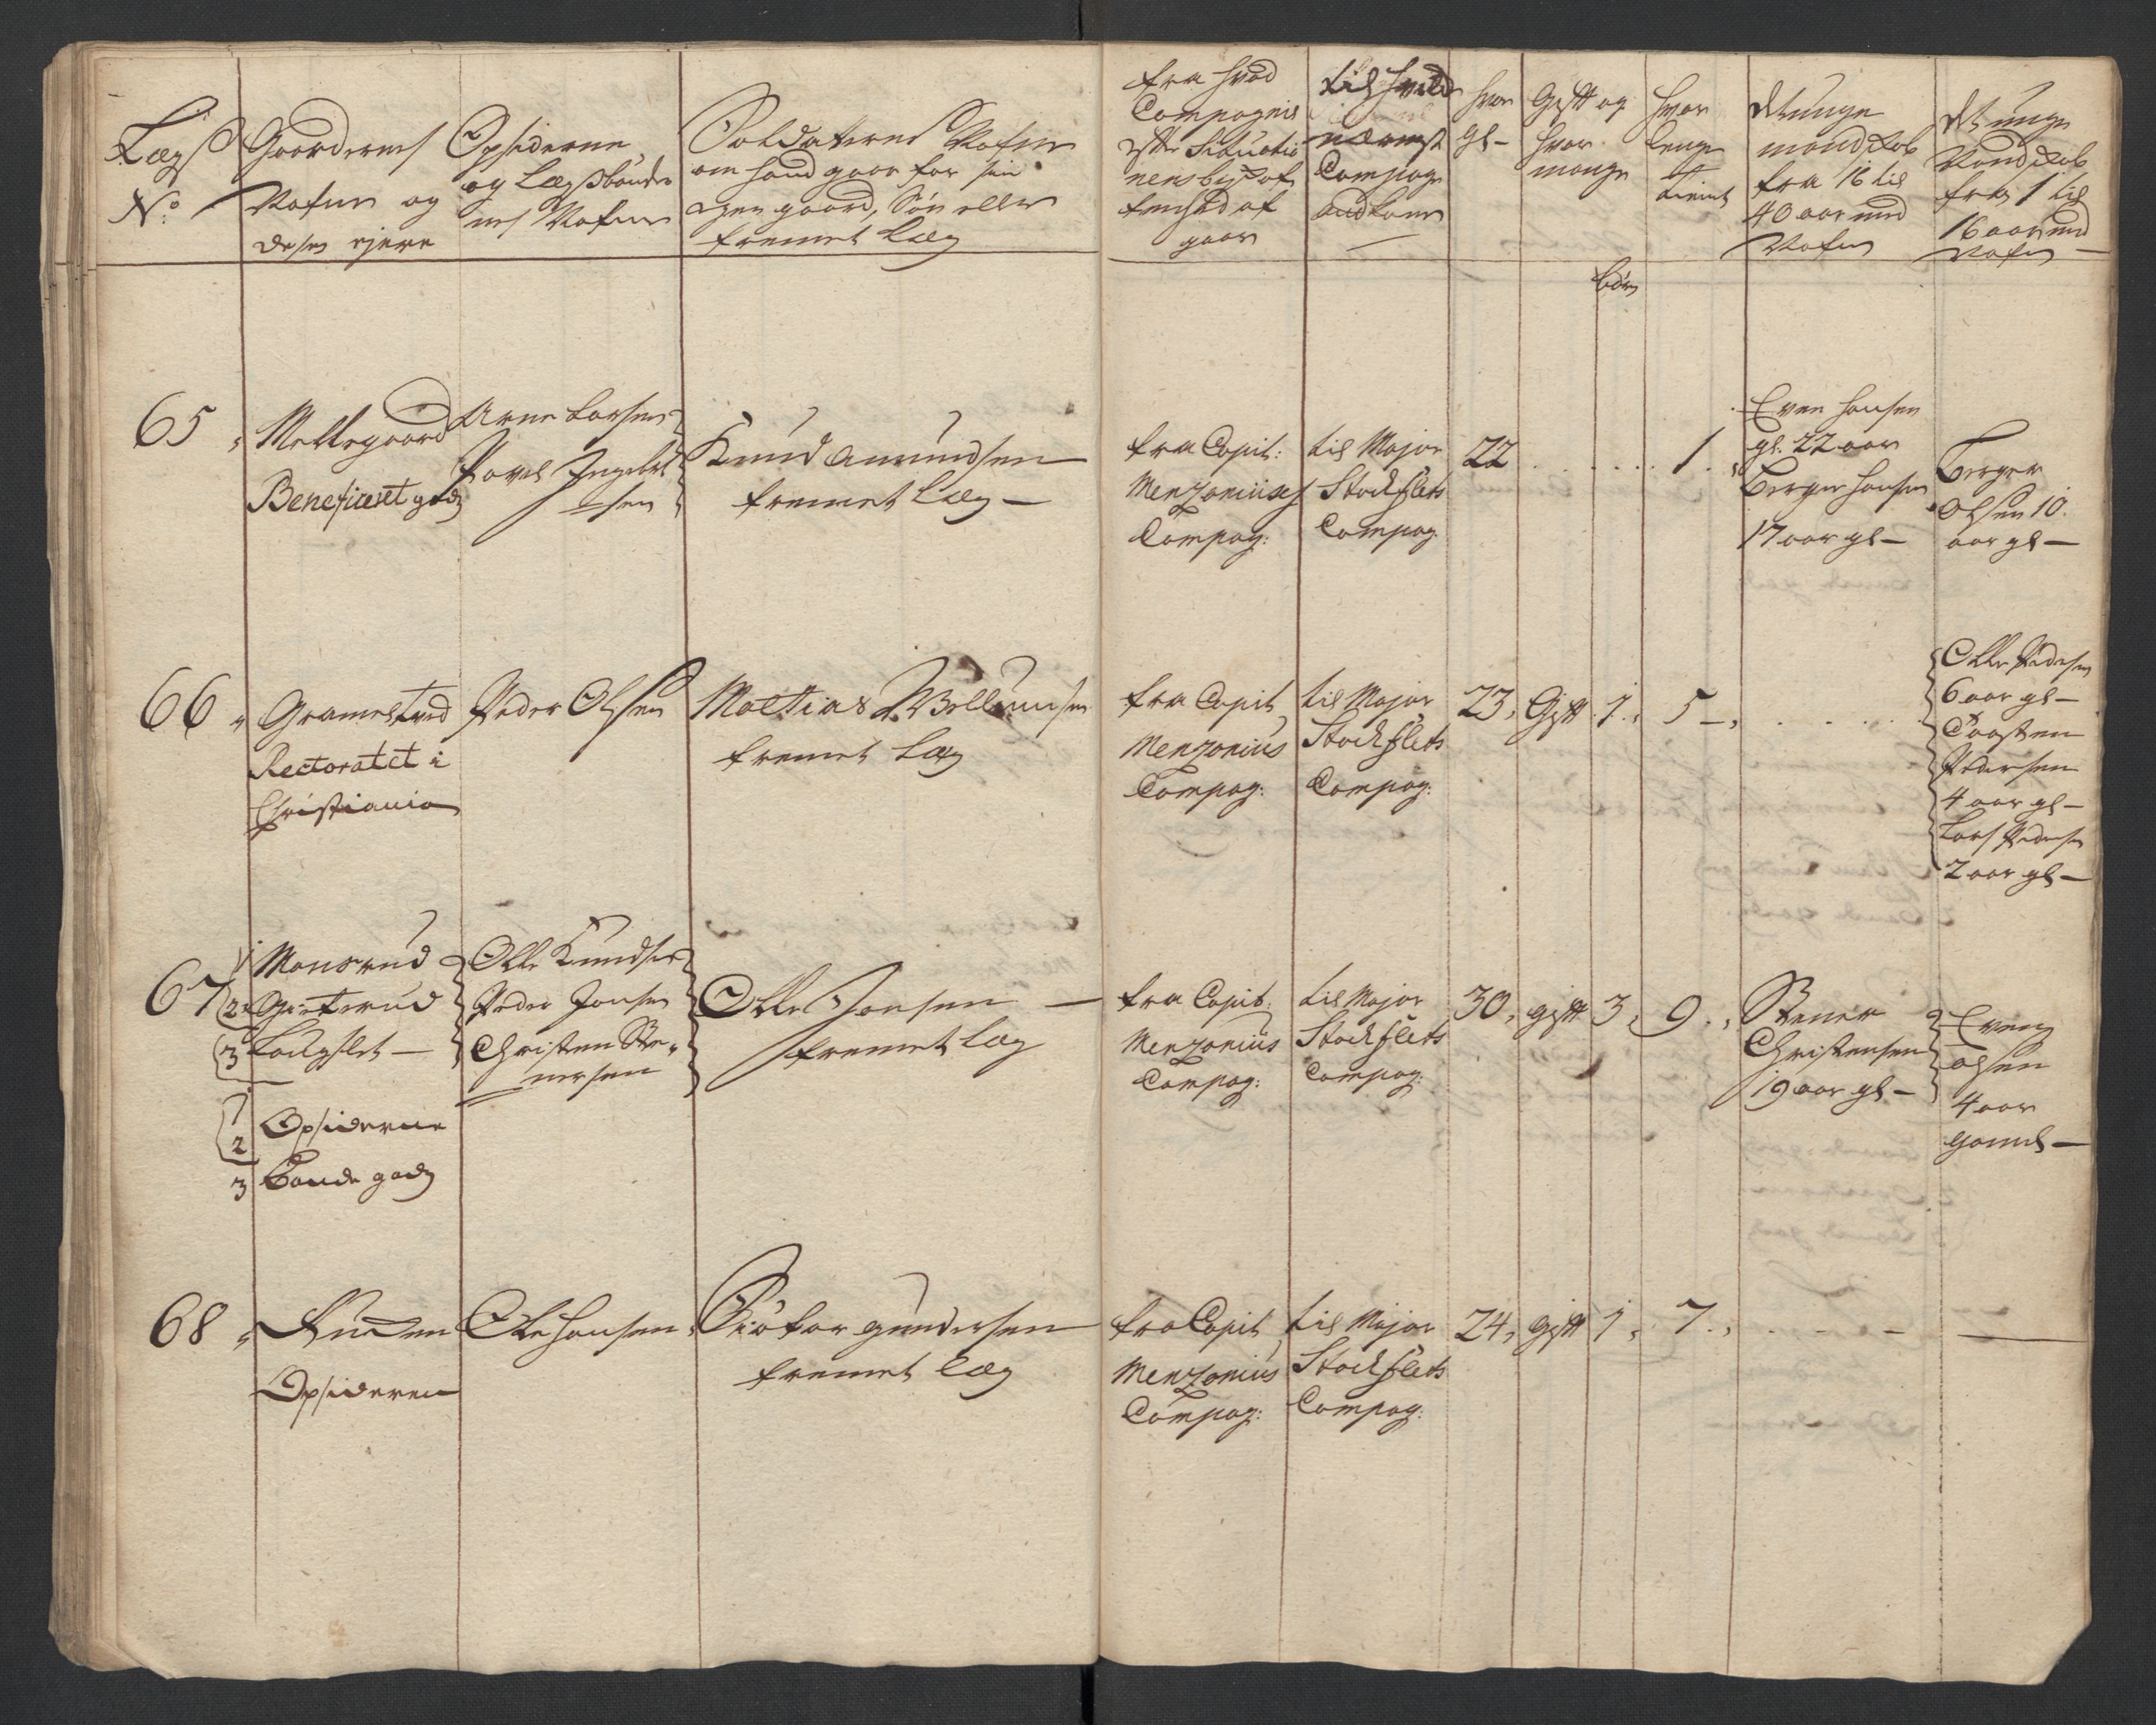 Lægß
No
Gaardernes
Nafne og
deses ejere
Opsiderne
og Lægsbønder
nes Nafne
Soldaternes Nafne
om hand gaar for sin
egen gaard, Søn eller
fremet Læg
fra hvad
Compagnie
efter Situatio
nens
gaar
til hvilchen
nærmest
Compag
hvor
gl-
Gift og
hvor
mange
børn
hvor
lenge
tient
det unge
mandskab
fra 16 til
40 aar med
Nafn
det unge
Mandskab
fra 1 til
16 aar med
Nafn
65
Mellegaard
Beneficeret gods
Arne Larsen
Povel Ingebret
sen
Knud Amundsen
fremet Læg
fra Capit:
Menzoniuses
Compag:
til Major
Stockflets
Compag
22
1
Even Hansen
gl. 22 aar
Berger Hansen
17 aar gl
Berger
Olsen 10
aar gl
66
Gramestved
Rectoratet i
Christiania
Peder Olsen
Mattias Wellumsen
fremet Læg
fra Capit
Menzonius
Compag:
til Major
Stockflets
Compag:
23, Gift 1, 5
Olle Pedersen
6 aar gl
Torsten
Pedersen
4 aar gl
Lars Pedersen
2 aar gl
67
1 Monsrud
2 Gieterud
3 Laugslet
1
2 Opsiderne
3 Bonde gods
Olle Knudsen
Peder Jonsen
Christen Ste
nersen
Olle Jonsen
fremet Læg
fra Capit:
Menzonius
Compag:
til Major
Stockflets
Compag:
30, gift 3, 9
Stener
Christensen
19 aar gl
Even
Olsen
4 aar
gamel
68
Ruden
Opsideren
Ole Hansen
Siøfar Gundersen
fremet læg
fra Capit
Menzonius
Compag:
til Major
Stockflets
Compag:
24, gift 1, 7